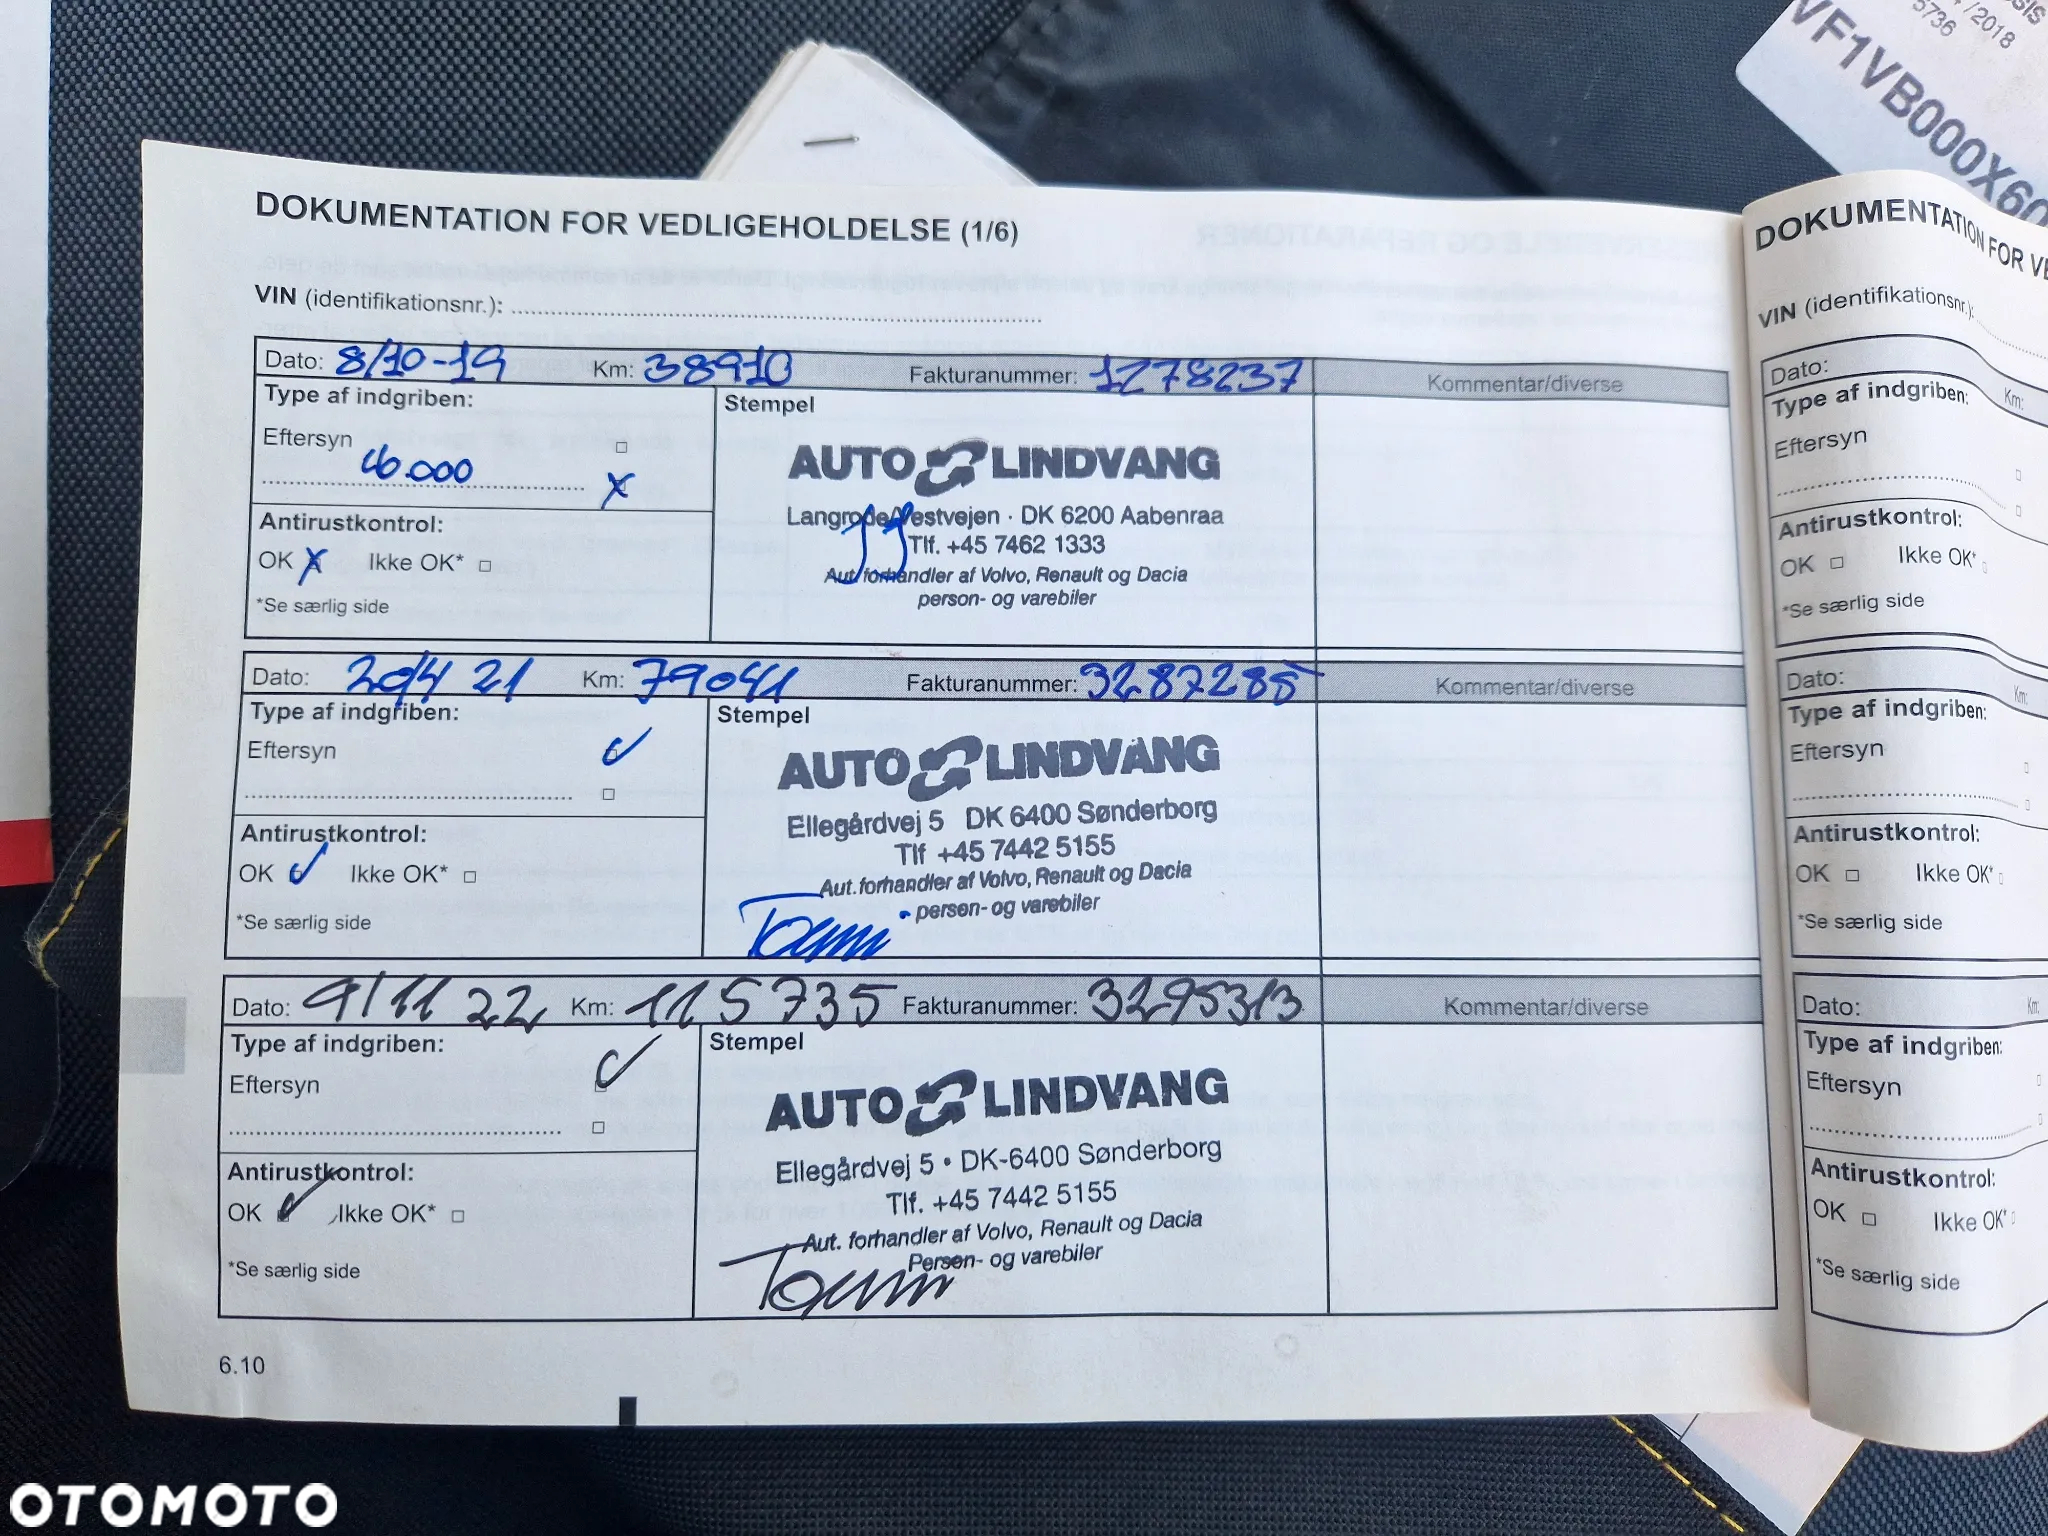 SIS
/2018
5736
VF1VB000X60
DOKUMENTATION FOR VEDLIGEHOLDELSE (1/6)
VIN (identifikationsnr.):
Dato: 8/10-19 Km: 38910 Fakturanummer: 1278237 Kommentar/diverse
Type af indgriben:
Eftersyn
Stempel
AUTO LINDVANG
Langrode/Vestvejen · DK 6200 Aabenraa
Tlf. +45 7462 1333
Aut. forhandler af Volvo, Renault og Dacia
person- og varebiler
Antirustkontrol:
OK Ikke OK*
*Se særlig side
Dato: 20/4 21 Km: 79041 Fakturanummer: 3287285 Kommentar/diverse
Type af indgriben:
Eftersyn
Stempel
AUTO LINDVANG
Ellegårdvej 5 DK 6400 Sønderborg
Tlf +45 7442 5155
Aut. forhandler af Volvo, Renault og Dacia
person- og varebiler
Antirustkontrol:
OK Ikke OK*
*Se særlig side
Dato: 9/11 22 Km: 115735 Fakturanummer: 3295313 Kommentar/diverse
Type af indgriben:
Eftersyn
Stempel
AUTO LINDVANG
Ellegårdvej 5 • DK-6400 Sønderborg
Tlf. +45 7442 5155
Aut. forhandler af Volvo, Renault og Dacia
Person- og varebiler
Antirustkontrol:
OK Ikke OK*
*Se særlig side
6.10
DOKUMENTATION FOR VE
VIN (identifikationsnr.):
Dato: Km:
Type af indgriben:
Eftersyn
Antirustkontrol:
OK Ikke OK*
*Se særlig side
Dato: Km:
Type af indgriben:
Eftersyn
Antirustkontrol:
OK Ikke OK*
*Se særlig side
Dato: Km:
Type af indgriben:
Eftersyn
Antirustkontrol:
OK Ikke OK*
*Se særlig side
OTOMOTO